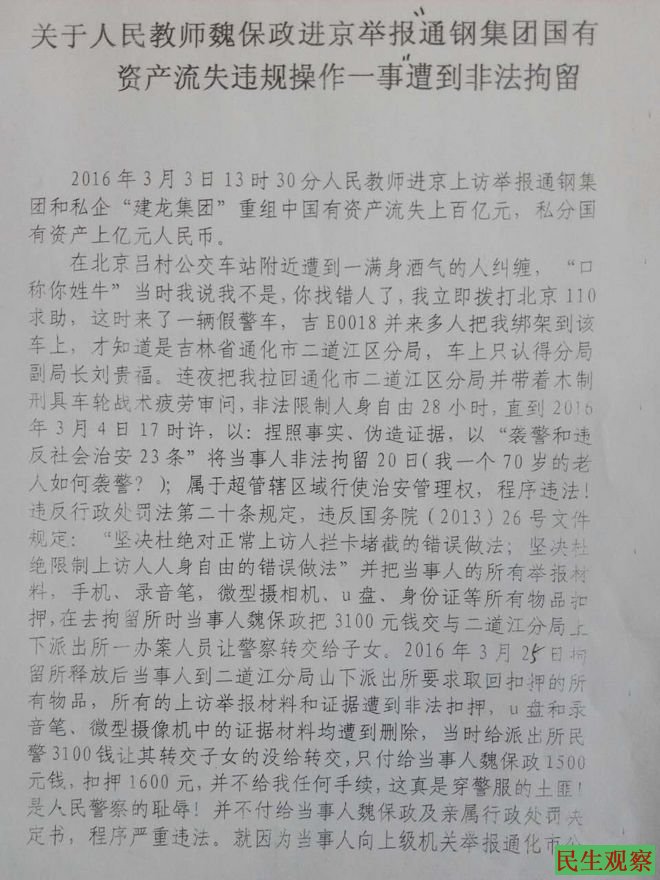 关于人民教师魏保政进京举报"通钢集团国有
资产流失违规操作一事"遭到非法拘留
2016年3月3日13时30分人民教师进京上访举报通钢集
团和私企“建龙集团”重组中国有资产流失上百亿元，私分国
有资产上亿元人民币。
在北京吕村公交车站附近遭到一满身酒气的人纠缠，“口
称你姓牛”当时我说我不是，你找错人了，我立即拨打北京110
求助，这时来了一辆假警车，吉E0018并来多人把我绑架到该
车上，才知道是吉林省通化市二道江区分局，车上只认得分局
副局长刘贵福。连夜把我拉回通化市二道江区分局并带着木制
刑具车轮战术疲劳审问，非法限制人身自由28小时，直到2016
年3月4日17时许，以：捏照事实、伪造证据，以“袭警和违
反社会治安23条”将当事人非法拘留20日(我一个70岁的老
人如何袭警？)；属于超管辖区域行使治安管理权，程序违法！
违反行政处罚法第二十条规定，违反国务院(2013)26号文件
规定：“坚决杜绝对正常上访人拦卡堵截的错误做法；坚决杜
绝限制上访人人身自由的错误做法”并把当事人的所有举报材
料，手机、录音笔，微型摄相机、u盘、身份证等所有物品扣
押,在去拘留所时当事人魏保政把3100元钱交与二道江分局上
下派出所一办案人员让警察转交给子女。2016年3月25日拘
留所释放后当事人到二道江分局山下派出所要求取回扣押的所
有物品，所有的上访举报材料和证据遭到非法扣押，u盘和录
音笔、微型摄像机中的证据材料均遭到删除，当时给派出所民
警3100钱让其转交子女的没给转交,只付给当事人魏保政1500
元钱，扣押1600元，并不给我任何手续，这真是穿警服的土匪！
是人民警察的耻辱！并不付给当事人魏保政及亲属行政处罚决
定书，程序严重违法。就因为当事人向上级机关举报通化市公
民生观察